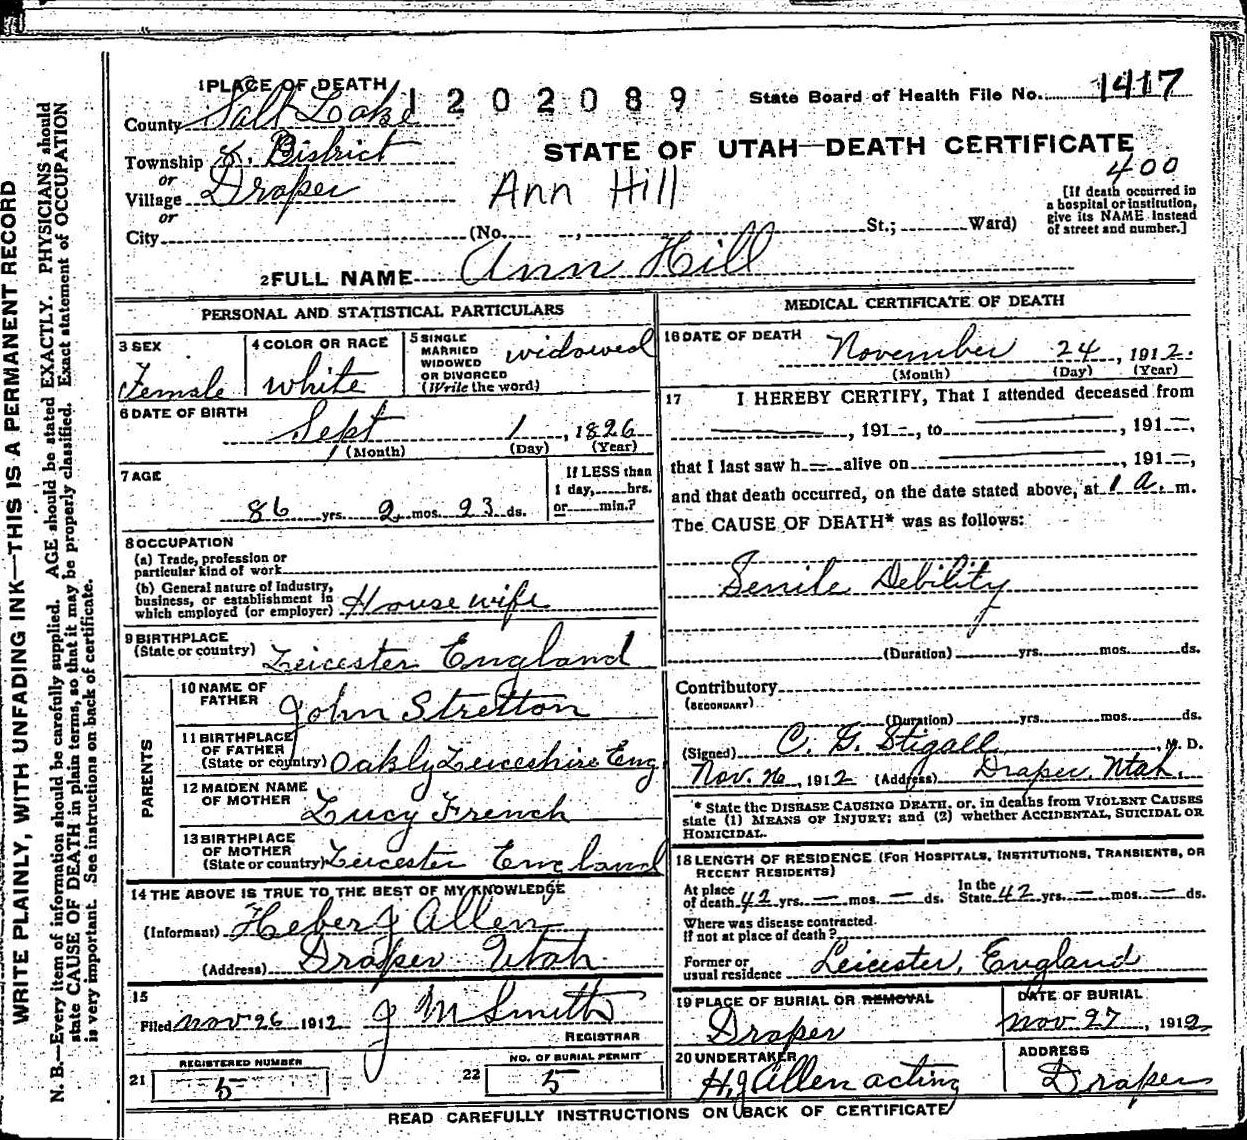 WRITE PLAINLY, WITH UNFADING INK—THIS IS A PERMANENT RECORD
N. B.—Every item of information should be carefully supplied. AGE should be stated EXACTLY. PHYSICIANS should
state CAUSE OF DEATH in plain terms, so that it may be properly classified. Exact statement of OCCUPATION
is very important. See instructions on back of certificate.
1 PLACE OF DEATH
1202089
State Board of Health File No. 1417
County Salt Lake
STATE OF UTAH—DEATH CERTIFICATE
Township District
400
or
Village Draper
Ann Hill
[If death occurred in
a hospital or institution,
give its NAME instead
of street and number.]
or
City (No. , St.; Ward)
2 FULL NAME Ann Hill
PERSONAL AND STATISTICAL PARTICULARS
3 SEX
Female
4 COLOR OR RACE
white
5 SINGLE
MARRIED
WIDOWED
OR DIVORCED
(Write the word)
widowed
6 DATE OF BIRTH
Sept 1, 1826
(Month) (Day) (Year)
7 AGE
86 yrs. 2 mos. 23 ds.
If LESS than
1 day, hrs.
or min.?
8 OCCUPATION
(a) Trade, profession or
particular kind of work
(b) General nature of Industry,
business, or establishment in
which employed (or employer) House wife
9 BIRTHPLACE
(State or country) Leicester England
PARENTS
10 NAME OF
FATHER John Stretton
11 BIRTHPLACE
OF FATHER
(State or country) Oakly Leiceshire Eng
12 MAIDEN NAME
OF MOTHER Lucy French
13 BIRTHPLACE
OF MOTHER
(State or country) Leicester England
14 THE ABOVE IS TRUE TO THE BEST OF MY KNOWLEDGE
(Informant) Heber J Allen
(Address) Draper Utah
15
Filed Nov 26 1912 J M Smith
REGISTRAR
21 REGISTERED NUMBER
5
22 NO. OF BURIAL PERMIT
5
MEDICAL CERTIFICATE OF DEATH
16 DATE OF DEATH
November 24, 1912.
(Month) (Day) (Year)
17 I HEREBY CERTIFY, That I attended deceased from
—, 191—, to —, 191—,
that I last saw h— alive on —, 191—,
and that death occurred, on the date stated above, at 1 a. m.
The CAUSE OF DEATH* was as follows:
Senile Debility
(Duration) yrs. mos. ds.
Contributory
(SECONDARY)
(Duration) yrs. mos. ds.
(Signed) C. G. Stigall, M. D.
Nov. 26, 1912 (Address) Draper Utah.
* State the DISEASE CAUSING DEATH, or, in deaths from VIOLENT CAUSES
state (1) MEANS OF INJURY; and (2) whether ACCIDENTAL, SUICIDAL OR
HOMICIDAL.
18 LENGTH OF RESIDENCE (FOR HOSPITALS, INSTITUTIONS, TRANSIENTS, OR
RECENT RESIDENTS)
At place
of death 42 yrs. — mos. — ds.
In the
State 42 yrs. — mos. — ds.
Where was disease contracted
If not at place of death?
Former or
usual residence Leicester, England
19 PLACE OF BURIAL OR REMOVAL
Draper
DATE OF BURIAL
Nov 27, 1912
20 UNDERTAKER
H. J Allen acting
ADDRESS
Draper
READ CAREFULLY INSTRUCTIONS ON BACK OF CERTIFICATE